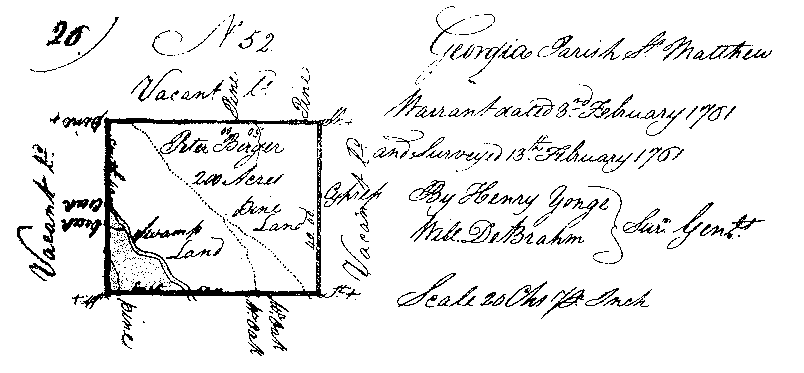 26
No 52
Georgia Parish St Matthew
Vacant Ld
Pine
Pine
Pine +
St +
Warrant dated 3rd February 1761
and Surveyed 13th February 1761
By Henry Yonge
Will. DeBrahm
Sur: Gen:ls
Scale 20 Chs P Inch
Peter Berger
200 Acres
Pine
Land
Swamp
Land
Vacant Ld
Vacant Ld
Cypress
pine
Wt Oak
Wt Oak
St +